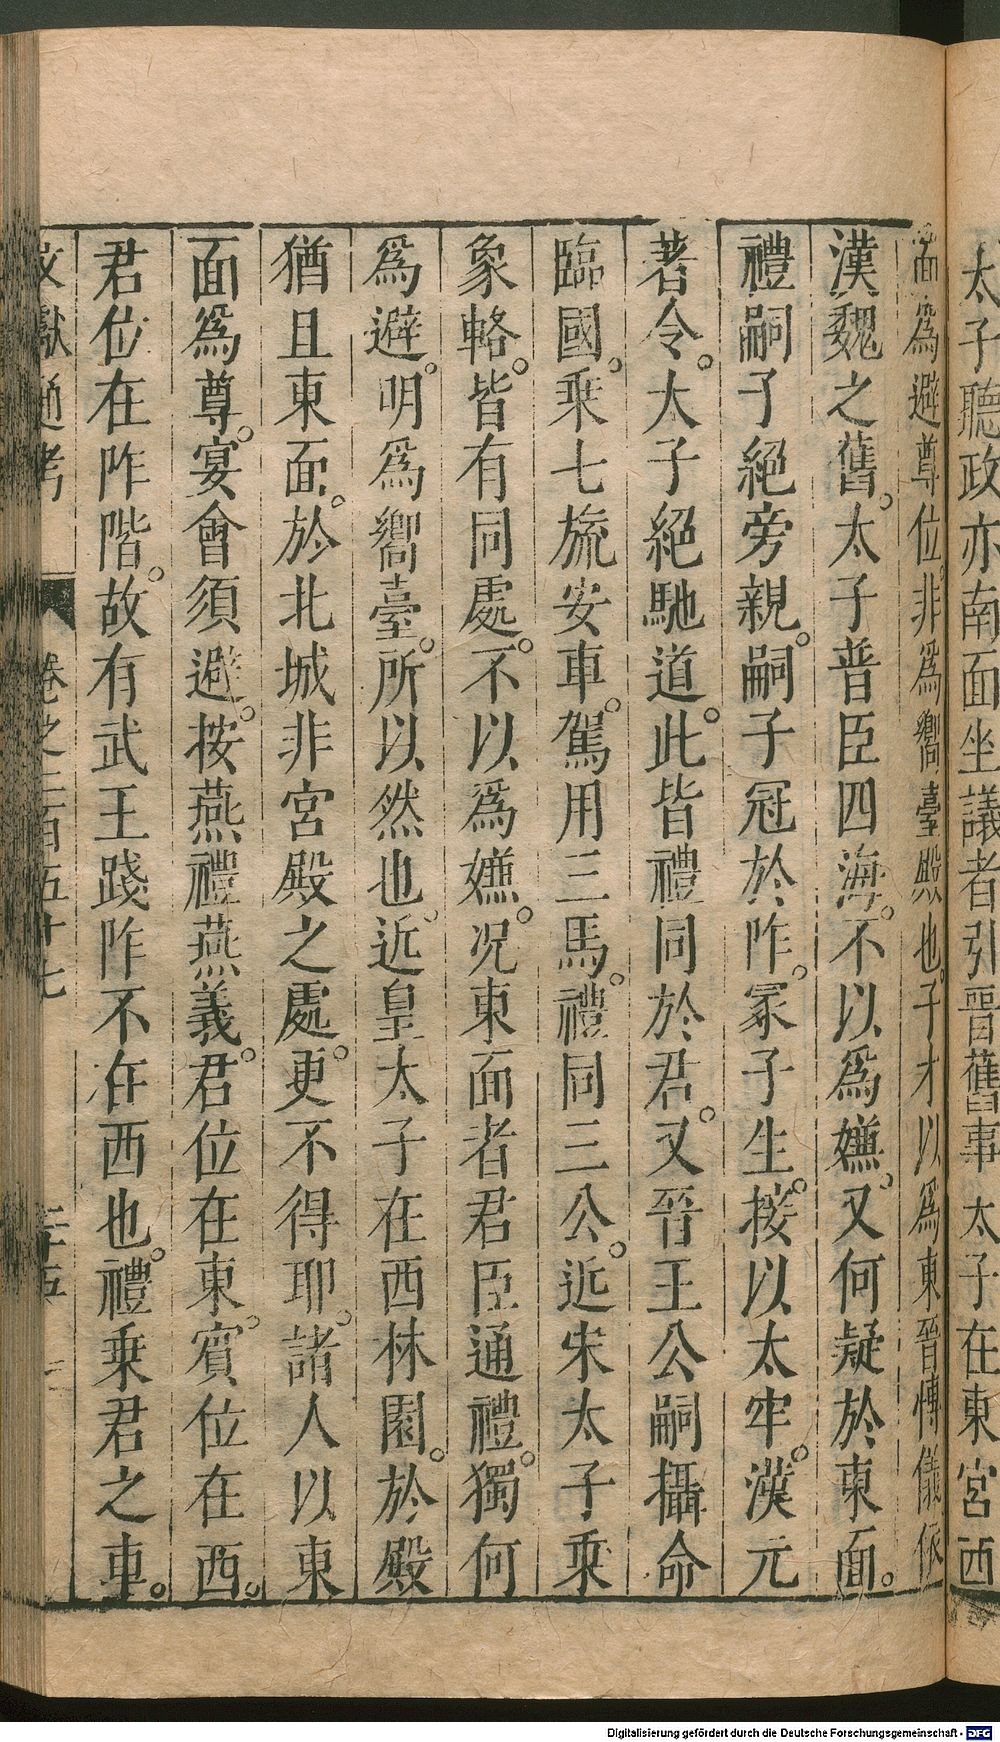 太子聽政亦南面坐議者引晉舊事太子在東宮西
面爲避尊位非爲嚮臺殿也子才以爲東晉博儀依
漢魏之舊太子普臣四海不以爲嫌又何疑於東面
禮嗣子絕旁親嗣子冠於阼冢子生接以太牢漢元
著令太子絕馳道此皆禮同於君又晉王公嗣攝命
臨國乘七旒安車駕用三馬禮同三公近宋太子乘
象輅皆有同處不以爲嫌况東面者君臣通禮獨何
爲避明爲嚮臺所以然也近皇太子在西林園於殿
猶且東面於北城非宮殿之處更不得耶諸人以東
面爲尊宴會須避按燕禮燕義君位在東賓位在西
君位在阼階故有武王踐阼不在西也禮乘君之車
文獻通考 卷之二百五十七 二十五
Digitalisierung gefördert durch die Deutsche Forschungsgemeinschaft - DFG